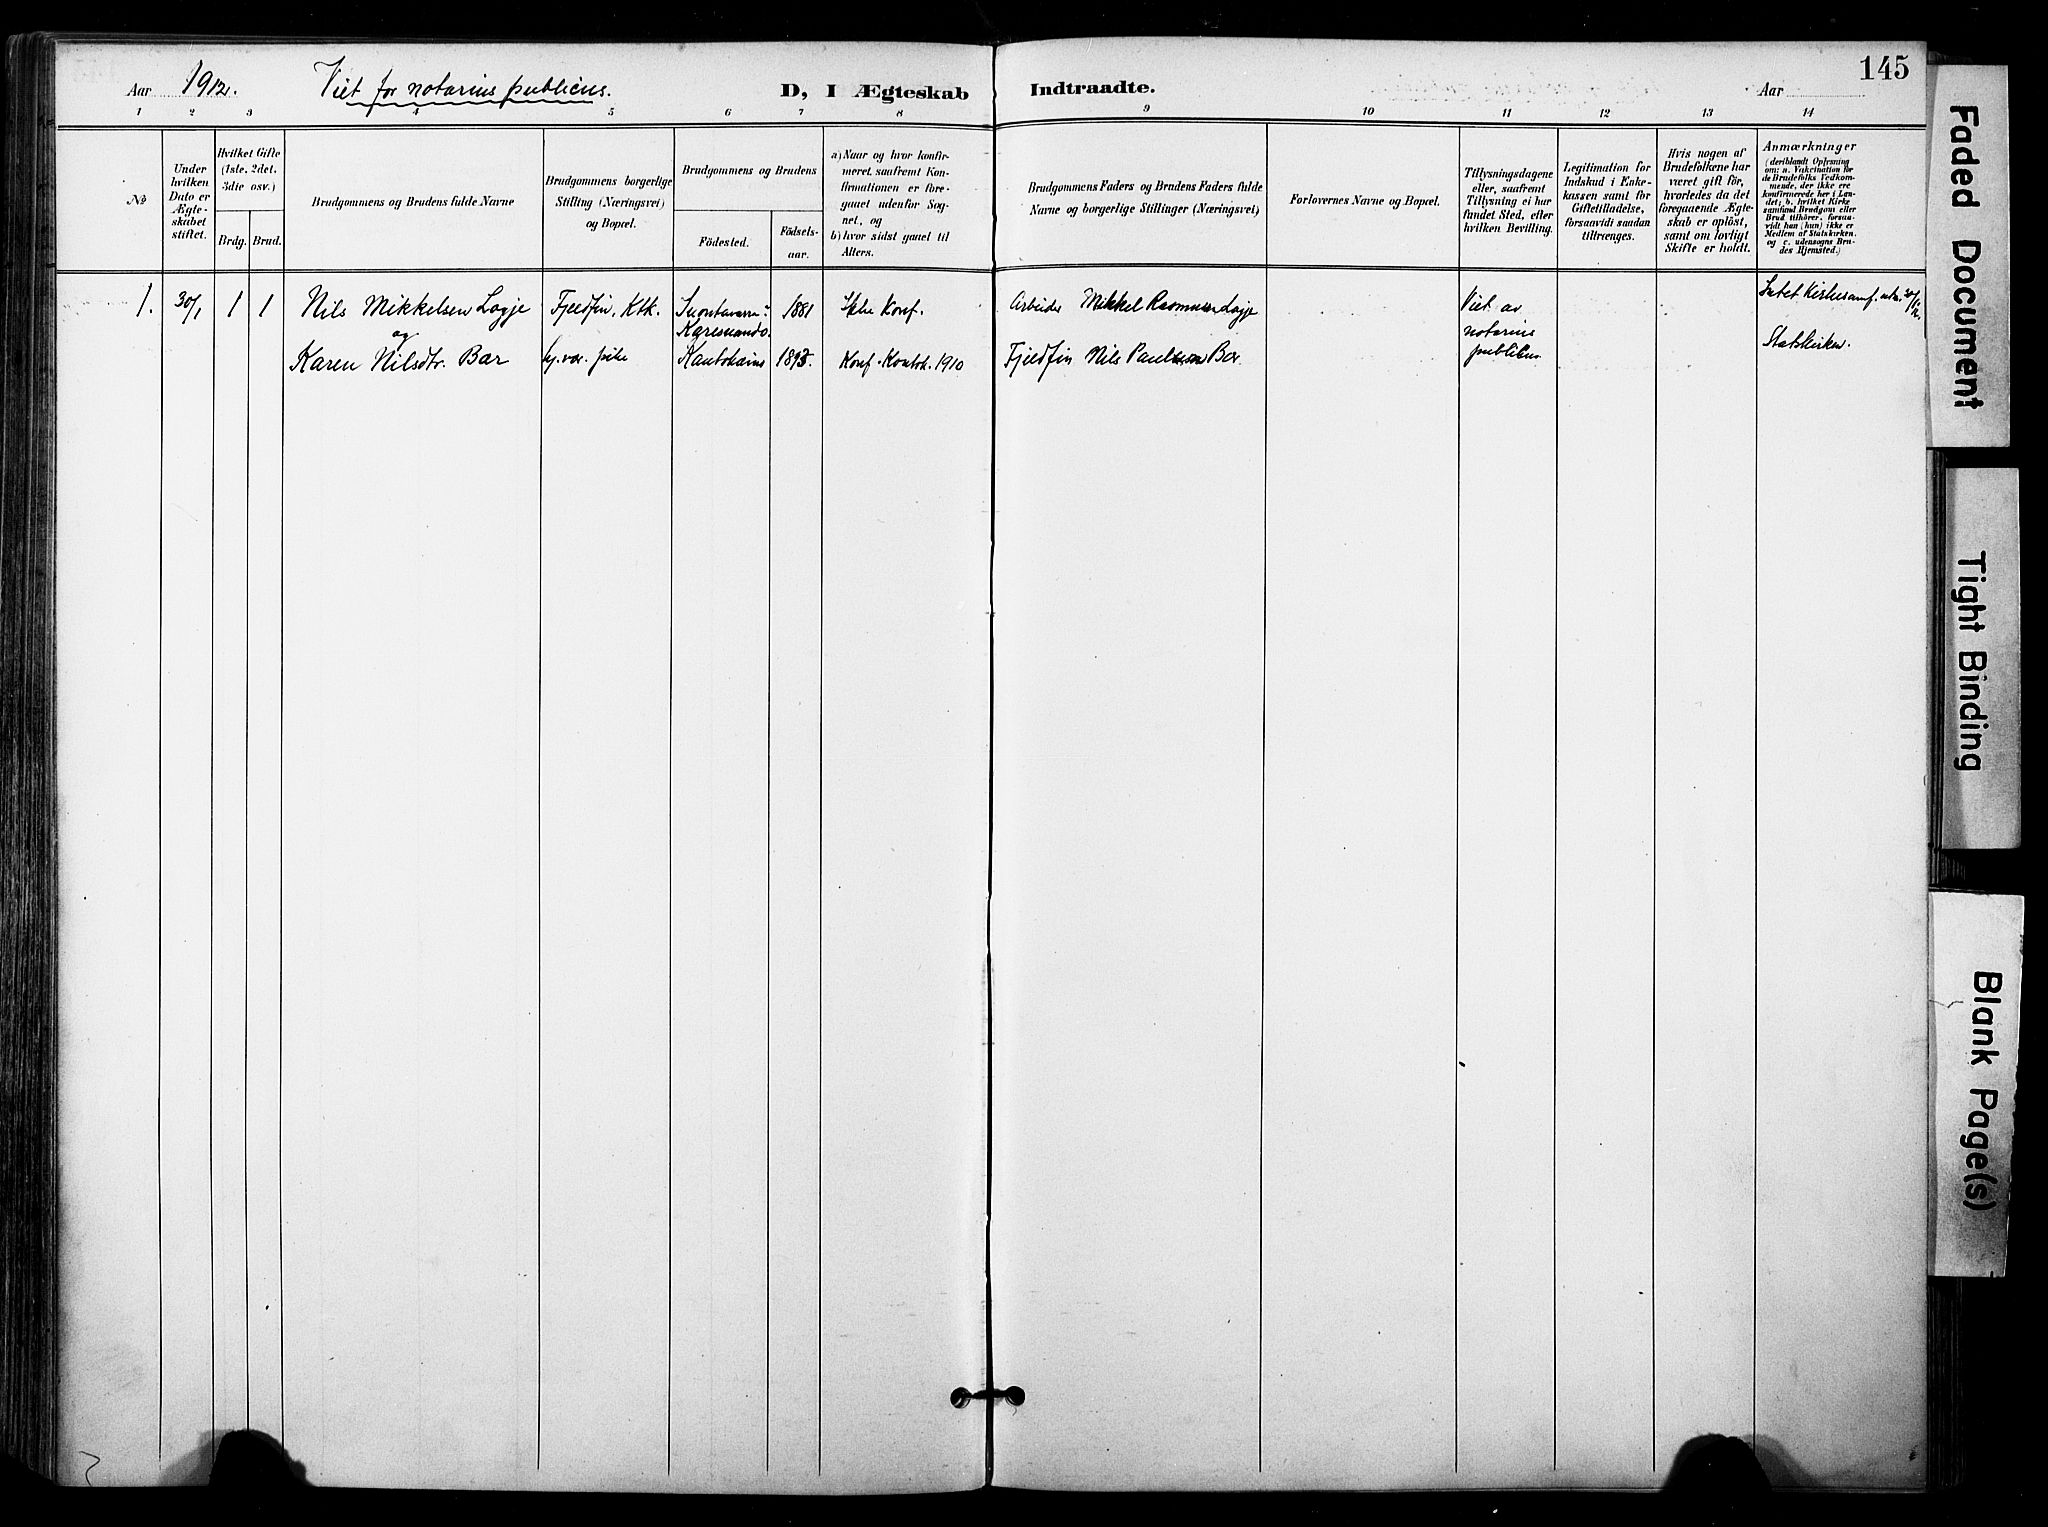 145
Aar 1912. Viet for notarius publicus. D, I Ægteskab Indtraadte. Aar
1 2 3 4 5 6 7 8 9 10 11 12 13 14
No
Under
hvilken
Dato er
Ægte-
skabet
stiftet.
Hvilket Gifte
(1ste, 2det,
3die osv.)
Brdg. Brud.
Brudgommens og Brudens fulde Navne
Brudgommens borgerlige
Stilling (Næringsvei)
og Bopæl.
Brudgommens og Brudens
Födested.
Födsels-
aar.
a) Naar og hvor konfir-
meret, saafremt Kon-
firmationen er fore-
gaaet udenfor Sog-
net, og
b) hvor sidst gaaet til
Alters.
Brudgommens Faders og Brudens Faders fulde
Navne og borgerlige Stillinger (Næringsvei)
Forlovernes Navne og Bopæl.
Tillysningsdagene
eller, saafremt
Tillysning ei har
fundet Sted, efter
hvilken Bevilling.
Legitimation for
Indskud i Enke-
kassen samt for
Giftetilladelse,
forsaavidt saadan
tiltrænges.
Hvis nogen af
Brudefolkene har
været gift för,
hvorledes da det
foregaaende Ægte-
skab er oplöst,
samt om lovligt
Skifte er holdt.
Anmærkninger
(deriblandt Oplysning
om: a. Vakcination for
de Brudefolks Vedkom-
mende, der ikke ere
konfirmerede her i Lan-
det; b. hvilket Kirke
samfund Brudgom eller
Brud tilhører, forsaa-
vidt han (hun) ikke er
Medlem af Statskirken.
og c. udensogns Bru-
des Hjemsted.)
1. 30/1 1 1 Nils Mikkelsen Logje Fjeldfin, Ktk. Suontavaara i 1881 Ikke Konf. Arbeider Mikkel Rasmussen Logje Viet av Intet Kirkesamf.
og Karesuando notarius
Karen Nilsdtr. Bær hj.vær. pike Kautokeino 1893. Konf. Kautok. 1910 Fjeldfin Nils Paulsen Bær publicus Statskirken.
Faded Document
Tight Binding
Blank Page(s)